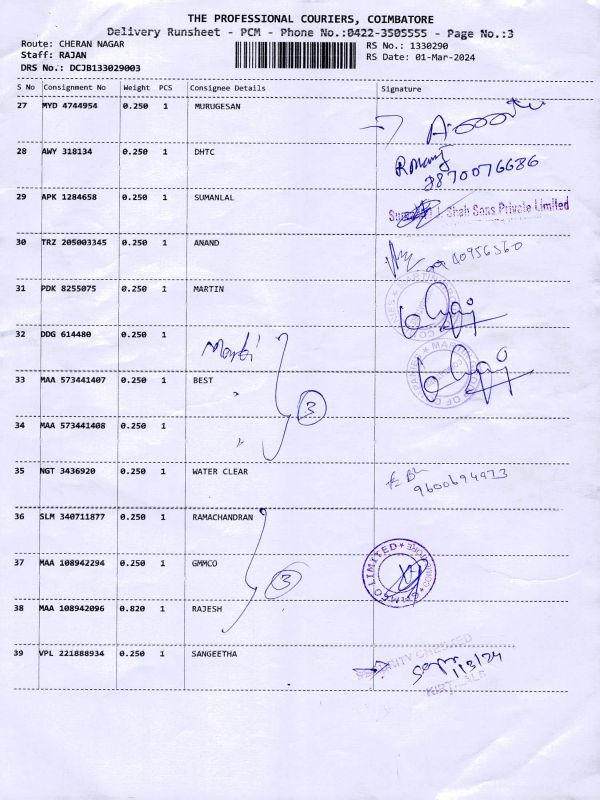 THE PROFESSIONAL COURIERS, COIMBATORE
Delivery Runsheet - PCM - Phone No.:0422-3505555 - Page No.:3
Route: CHERAN NAGAR
RS No.: 1330290
Staff: RAJAN
RS Date: 01-Mar-2024
DRS No.: DCJB133029003
S No Consignment No Weight PCS Consignee Details Signature
27 MYD 4744954 0.250 1 MURUGESAN
28 AWY 318134 0.250 1 DHTC
8870076686
29 APK 1284658 0.250 1 SUMANLAL
J. Shah Sons Private Limited
30 TRZ 205003345 0.250 1 ANAND
31 PDK 8255075 0.250 1 MARTIN
32 DDG 614480 0.250 1
33 MAA 573441407 0.250 1 BEST
3
34 MAA 573441408 0.250 1
35 NGT 3436920 0.250 1 WATER CLEAR
9600694973
36 SLM 340711877 0.250 1 RAMACHANDRAN
37 MAA 108942294 0.250 1 GMMCO
3
GMMCO LIMITED
38 MAA 108942096 0.820 1 RAJESH
39 VPL 221888934 0.250 1 SANGEETHA
SECURITY CHECKED
1/3/24